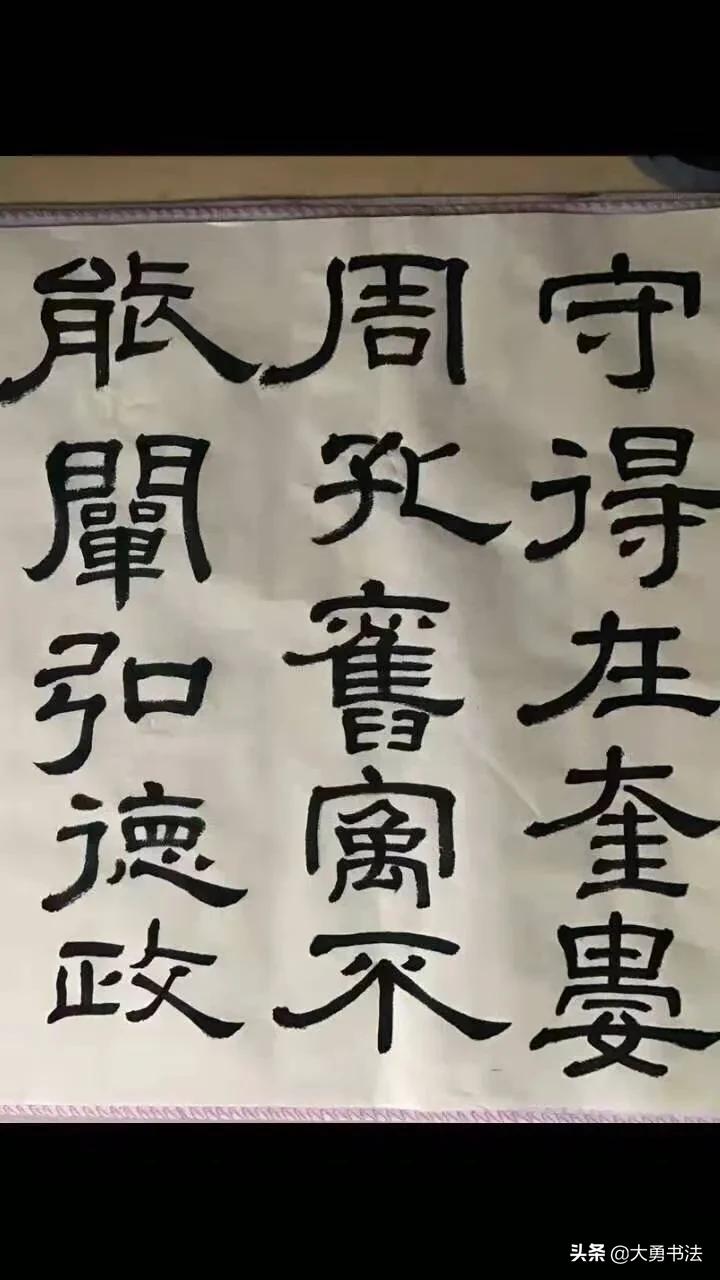 守得在奎婁
周孔舊寓不
能闡弘德政
头条 @大勇书法